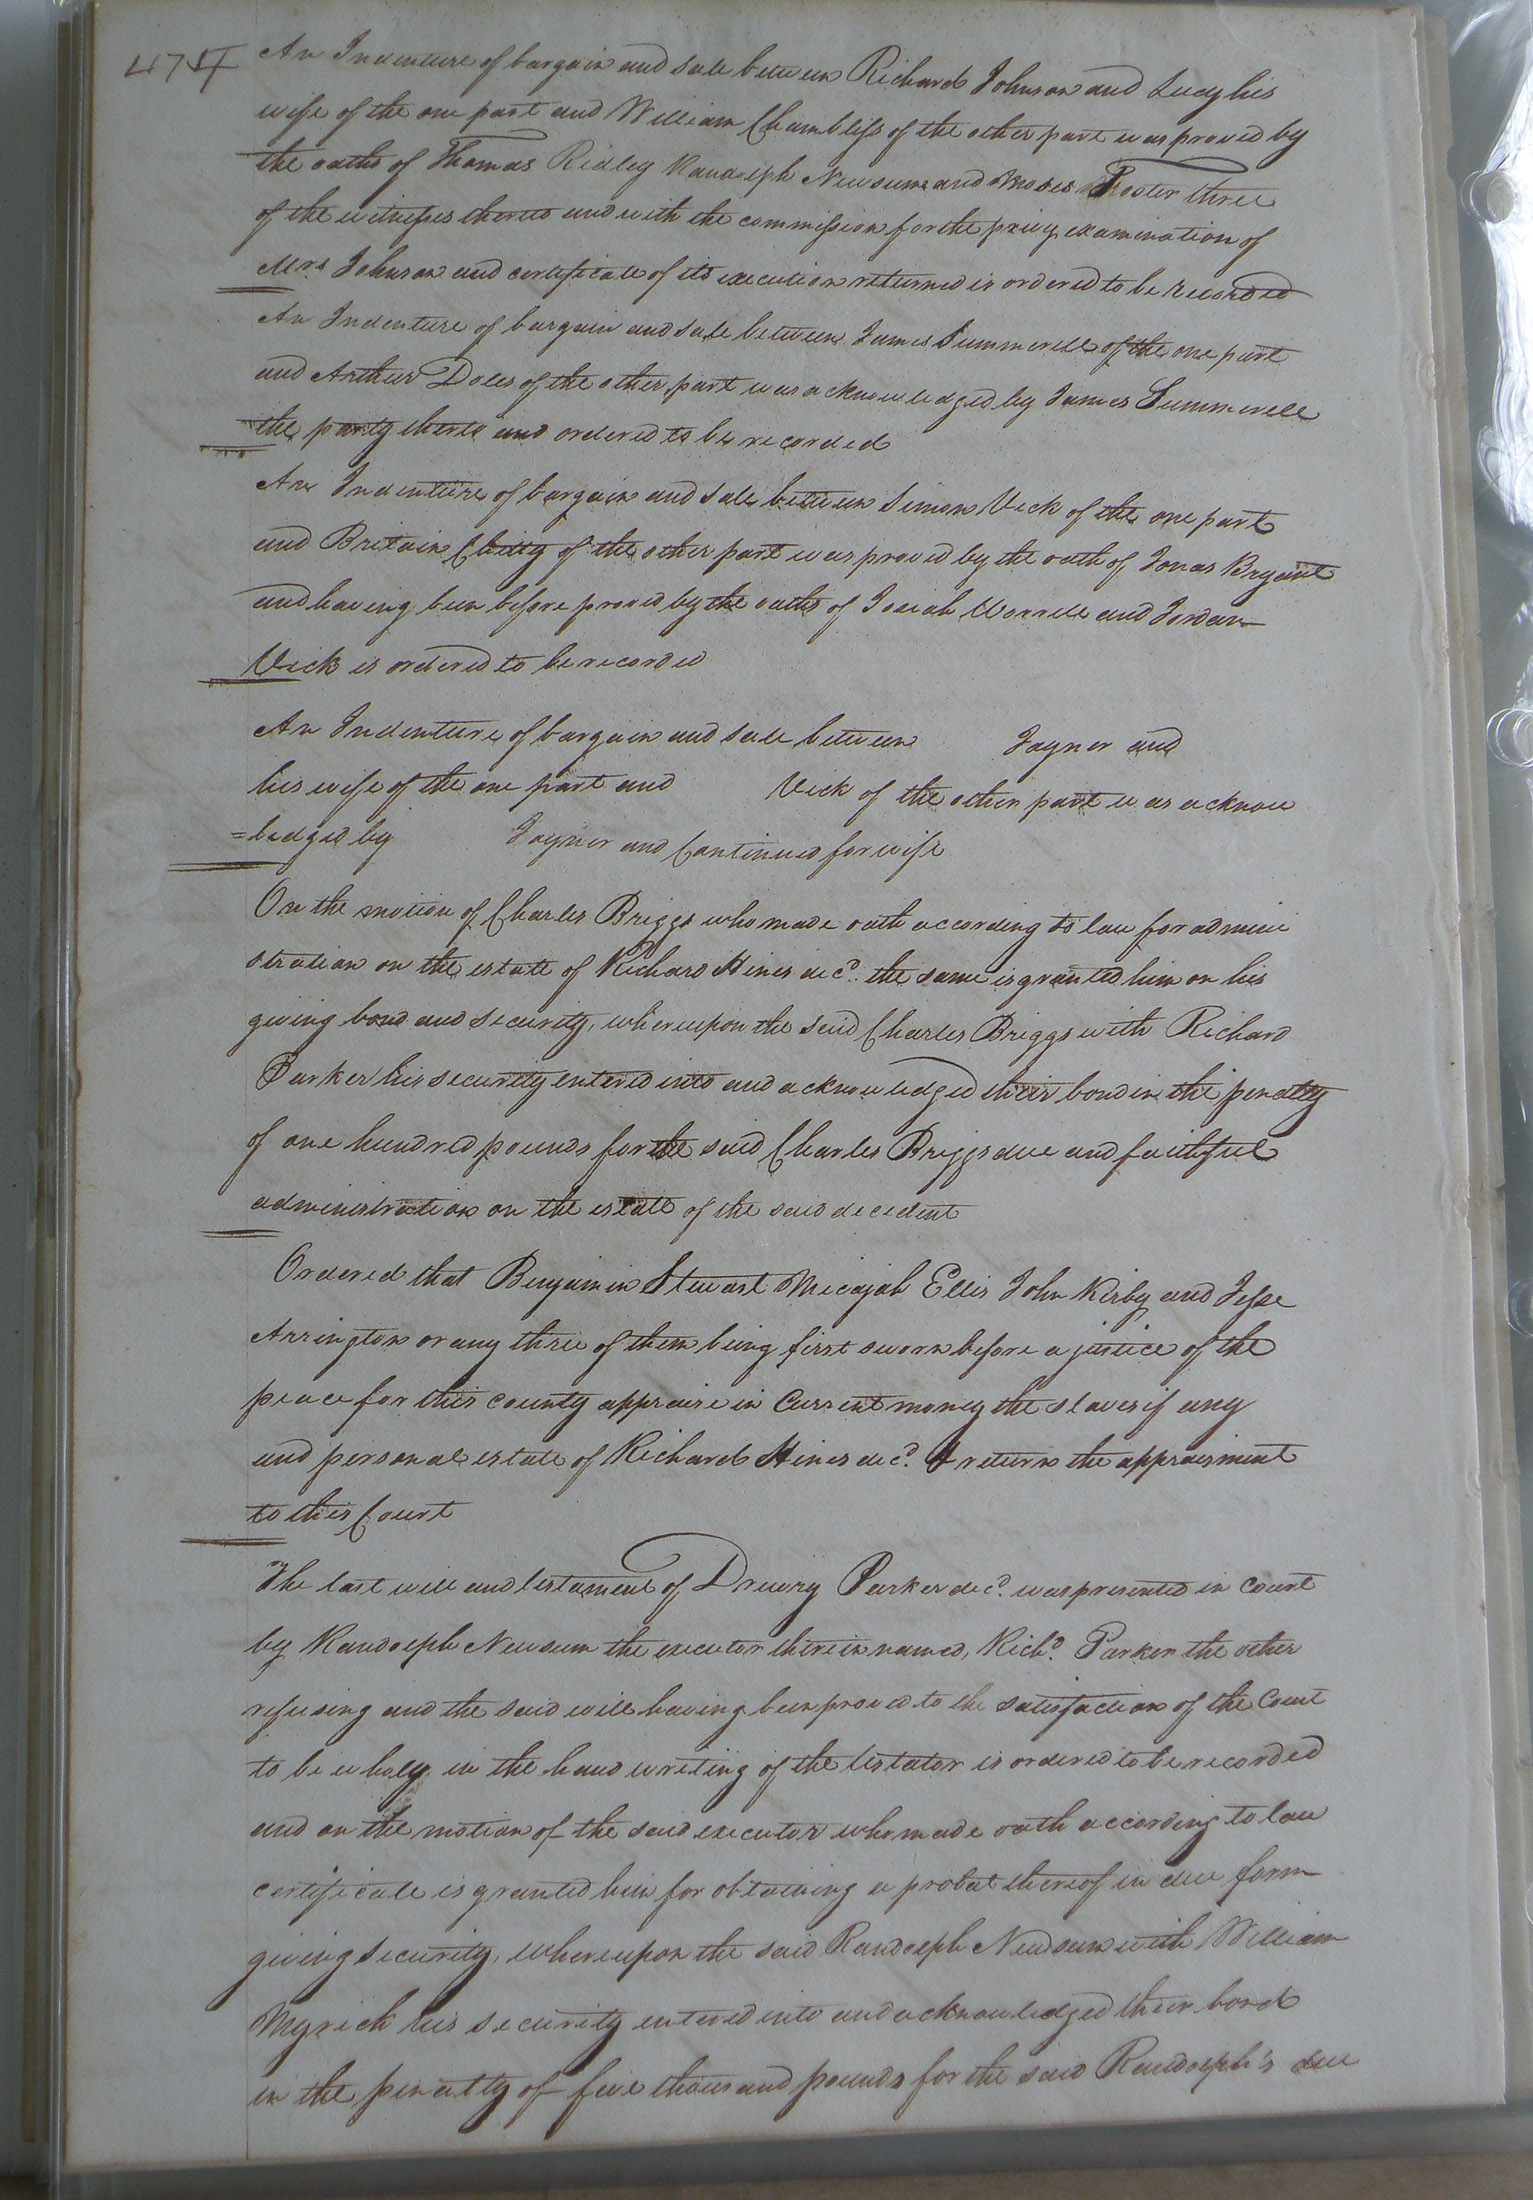 An Indenture of bargain and sale between Richard Johnson and Lucy his
wife of the one part and William Chambliss of the other part was proved by
the oaths of Thomas Ridley Randolph Newsume and Moses Foster three
of the witnesses thereto and with the commission for the privy examination of
Mrs Johnson and certificate of its execution returned is ordered to be recorded
An Indenture of bargain and sale between James Summerell of the one part
and Arthur Doles of the other part was acknowledged by James Summerell
the party thereto and ordered to be recorded
An Indenture of bargain and sale between Simon Vick of the one part
and Britain of the other part was proved by the oath of Jonas Bryant
and having been before proved by the oaths of Josiah Worrell and Jordan
Vick is ordered to be recorded
An Indenture of bargain and sale between Joyner and
his wife of the one part and Vick of the other part was acknow
=ledged by Joyner and Continued for wife
On the motion of Charles Briggs who made oath according to law for admini
stration on the estate of Richard Hines decd. the same is granted him on his
giving bond and security, whereupon the said Charles Briggs with Richard
Parker his security entered into and acknowledged their bond in the penalty
of one hundred pounds for the said Charles Briggs due and faithful
administration on the estate of the said decedent
Ordered that Benjamin Stewart Micajah Ellis John Kirby and Jesse
Arrington or any three of them being first sworn before a justice of the
peace for this county appraise in Current money the slaves if any
and personal estate of Richard Hines decd. & return the appraisment
to this Court
The last will and testament of Drewry Parker decd. was presented in Court
by Randolph Newsum the executor therein named, Richd. Parker the other
refusing and the said will having been proved to the satisfaction of the Court
to be wholy in the hand writing of the testator is ordered to be recorded
and on the motion of the said executor who made oath according to law
certificate is granted him for obtaining a probat thereof in due form
giving security, whereupon the said Randolph Newsum with William
Myrick his security entered into and acknowledged their bond
in the penalty of five thousand pounds for the said Randolph's due